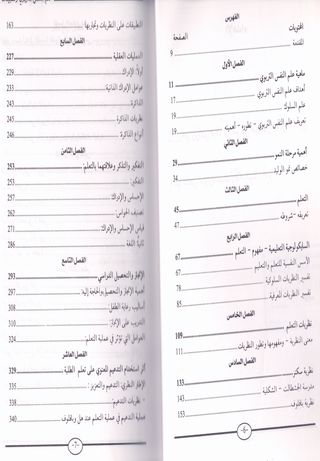 الفهرس
المحتويات
الصفحة
المقدمة 9
الفصل الأول
ماهية علم النفس التربوي 11
أهداف علم النفس التربوي 17
علم السلوك 19
تعريف علم النفس التربوي - تطوره - أهميته 19
الفصل الثاني
أهمية مرحلة النمو 29
خصائص نمو الوليد 34
الفصل الثالث
التعلم 45
تعريفه - شروطه 47
الفصل الرابع
السايكولوجية التعليمية - مفهوم - التعلم 67
الأسس النفسية للتعلم والتعليم 72
تفسير النظريات السلوكية 78
تفسير النظريات المعرفية 85
الفصل الخامس
نظريات التعلم 109
معنى النظرية - ومفهومها وتطور النظريات 111
الفصل السادس
نظرية سكنر 133
مدرسة الجشتالت - الشكلية 143
نظرية بافلوف 153
-6-
التطبيقات على النظريات وتجاربها 163
الفصل السابع
العمليات العقلية 227
أولاً: الإدراك 229
عوامل الإدراك الذاتية 233
الذاكرة 243
نظريات الذاكرة 245
أنواع الذاكرة 246
الفصل الثامن
التفكير والتفكر وعلاقتهما بالتعلم 253
التفكير 253
الإحساس والإدراك 257
تصنيف الحواس 262
قياس الإحساس والإدراك 271
ثانية اللغة 286
الفصل التاسع
الإنجاز والتحصيل الدراسي 293
أهمية الإنجاز والتحصيل والحاجة إليه 297
أساليب رعاية الطفل 308
التدريب على الإنجاز 310
العوامل التي تؤثر في عملية التعلم 324
الفصل العاشر
أثر استخدام التدعيم المعنوي على تعلم الطلبة 329
الإطار النظري، التدعيم والتعزيز 335
- نظريات التدعيم 338
عملية التدعيم في عملية التعلم عند هل وبافلوف 340
-7-